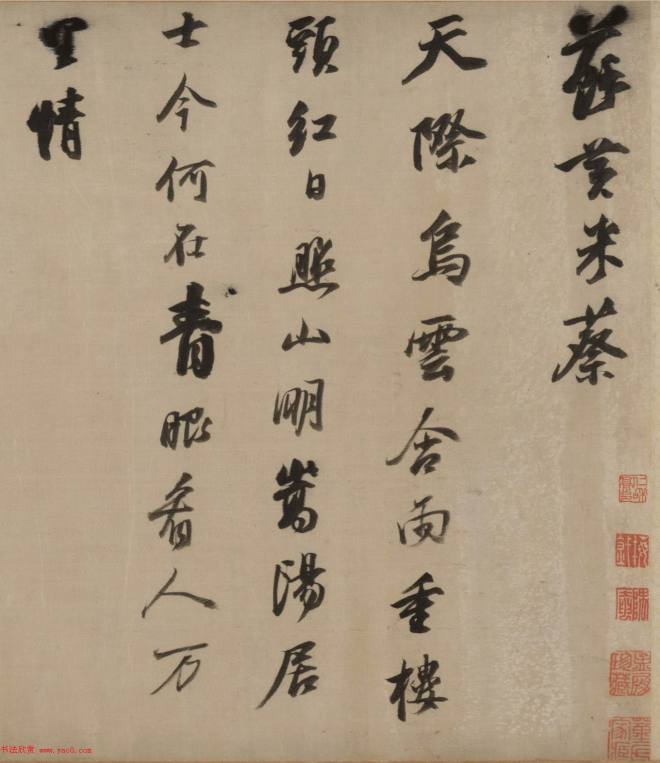 蘇黄米蔡
天際烏雲含雨重樓
頭紅日照山明嵩陽居
士今何在青眼看人万
里情
书法欣赏 www.yac8.com